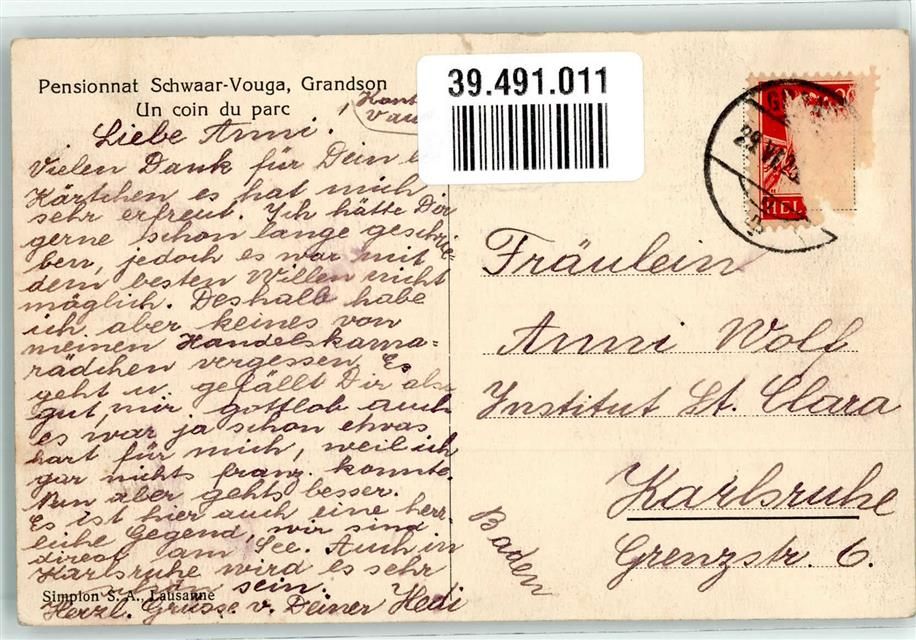 Pensionnat Schwaar-Vouga, Grandson
Un coin du parc
39.491.011
Liebe Anni.
Vielen Dank für Dein
Kärtchen es hat mich
sehr erfreut. Ich hätte Dir
gerne schon lange geschrie-
ben, jedoch es war mit
dem besten Willen nicht
möglich. Deshalb habe
ich aber keines von
meinen Handelskama-
rädchen vergessen. Es
geht u. gefällt Dir also
gut, mir gottlob auch
es war ja schon etwas
hart für mich, weil ich
gar nichts franz. konnte.
Nun aber gehts besser.
Es ist hier auch eine herr
liche Gegend, wir sind
direct am See. Auch in
Karlsruhe wird es sehr
sein.
Simplon S. A., Lausanne
Herzl. Grüsse v. Deiner Hedi
29.VI.
Fräulein
Anni Wolf
Institut St. Clara
Karlsruhe
Baden
Grenzstr. 6.